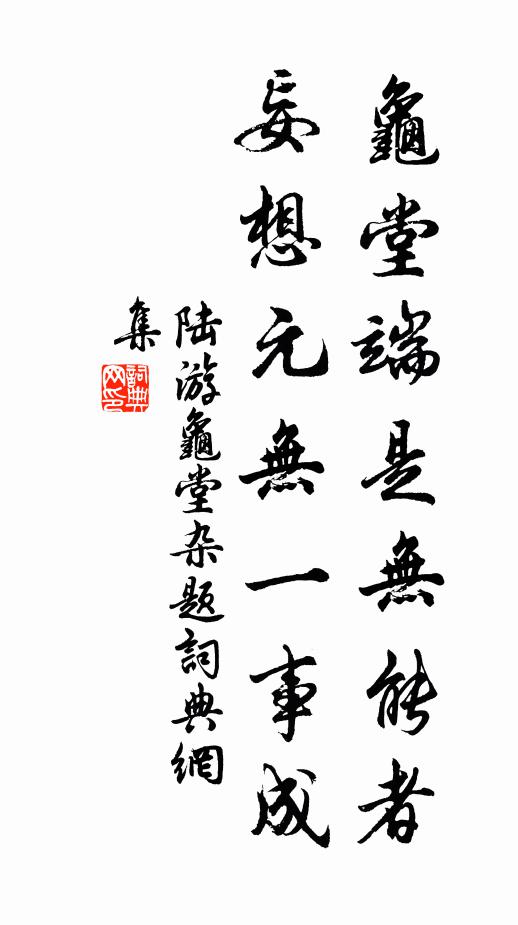 龜堂端是無能者
妄想元無一事成
陆游龜堂杂题詞典網
集
詞典
网印